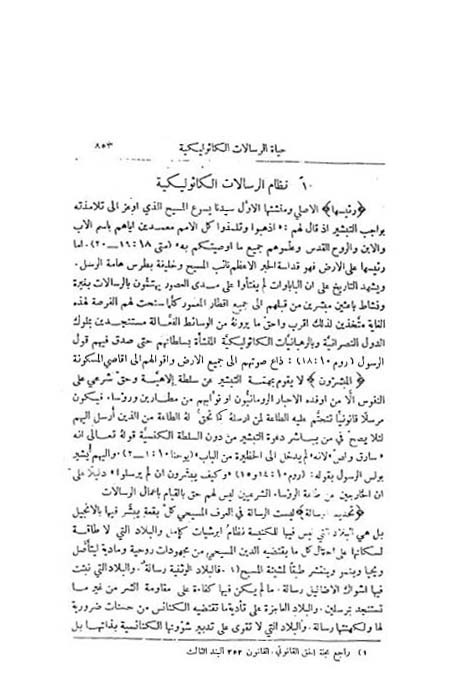 حياة الرسالات الكاثوليكية ٨٥٣
١٠ نظام الرسالات الكاثوليكية
﴿رئيسها﴾ الاصلي ومنشئها الاول سيدنا يسوع المسيح الذي اوعز الى تلامذته
بواجب التبشير اذ قال لهم : «اذهبوا وتلمذوا كل الامم معمدين اياهم باسم الآب
والابن والروح القدس وعلموهم جميع ما اوصيتكم به» (متى ١٨:١٦—٢٠). اما
رئيسها على الارض فهو قداسة الحبر الاعظم نائب المسيح وخليفة بطرس هامة الرسل.
ويشهد التاريخ على ان الباباوات لم يفتأوا على مدى العصور يهتمون بالرسالات بغيرة
ونشاط باعثين مبشرين من قبلهم الى جميع اقطار المعمور كلما سنحت لهم الفرصة لهذه
الغاية متخذين لذلك اقرب واحق ما يرونه من الوسائط الفعالة مستنجدين بملوك
الدول النصرانية وبالرهبانيات الكاثوليكية المنشأة بسلطانهم حتى صدق فيهم قول
الرسول (روم ١٨:١٠) : ذاع صوتهم الى جميع الارض واقوالهم الى اقاصي المسكونة
﴿المبشرون﴾ لا يقوم بمهمة التبشير عن سلطة إلاهية وحق شرعي على
النفوس الا من اوفده الاحبار الرومانيون او نوابهم من مطارين ورؤساء. فيكون
مرسلا قانونيا تتحتم عليه الطاعة لمن ارسله كما تحق له الطاعة من الذين أرسل اليهم
لئلا يصح في من يباشر دعوة التبشير من دون السلطة الكنسية قوله تعالى انه
«سارق ولص لانه لم يدخل الى الحظيرة من الباب» (يوحنا ١:١٠—٢). واليهم يشير
بولس الرسول بقوله: (روم ١٤:١٠ و١٥) «وكيف يبشرون ان لم يرسلوا» دليلا على
ان الخارجين عن طاعة الرؤساء الشرعيين ليس لهم حق بالقيام باعمال الرسالات
﴿تحديد الرسالة﴾ ليست الرسالة في العرف المسيحي كل بقعة يبشر فيها بالانجيل
بل هي البلاد التي ليس فيها للكنيسة نظام ابرشيات كامل والبلاد التي لا طاقة
لسكانها على احتمال كل ما يقتضيه الدين المسيحي من مجهودات روحية ومادية ليتأصل
ويحيا وينمو وينتشر طبقا لمشيئة المسيح (١. فالبلاد الوثنية رسالة. والبلاد التي نبتت
فيها اشواك الاضاليل رسالة. ما لم يكن فيها كفاءة على مقاومة الشر من غير ما
تستنجد بمرسلين. والبلاد العاجزة على تأدية ما تقتضيه الكنائس من حسنات ضرورية
لها ولكهنتها رسالة. والبلاد التي لا تقوى على تدبير شؤونها الكنائسية بذاتها بل
١) راجع مجلة الحق القانوني. القانون ٢٥٢ البند الثالث